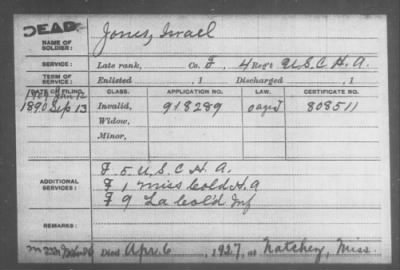 DEAD
NAME OF SOLDIER: Jones, Israel
SERVICE: Late rank, Co. F, 4 Reg't U.S.C.H.A.
TERM OF SERVICE: Enlisted , 1 Discharged , 1
DATE OF FILING. CLASS. APPLICATION NO. LAW. CERTIFICATE NO.
1890 Sep 13 Invalid, 918289 808511
Widow,
Minor,
ADDITIONAL SERVICES: F 5 U.S.C.H.A.
F 1 Miss Cold H.A
F 9 La Col'd Inf
REMARKS:
Died Apr. 6, 1927, at Natchez, Miss.